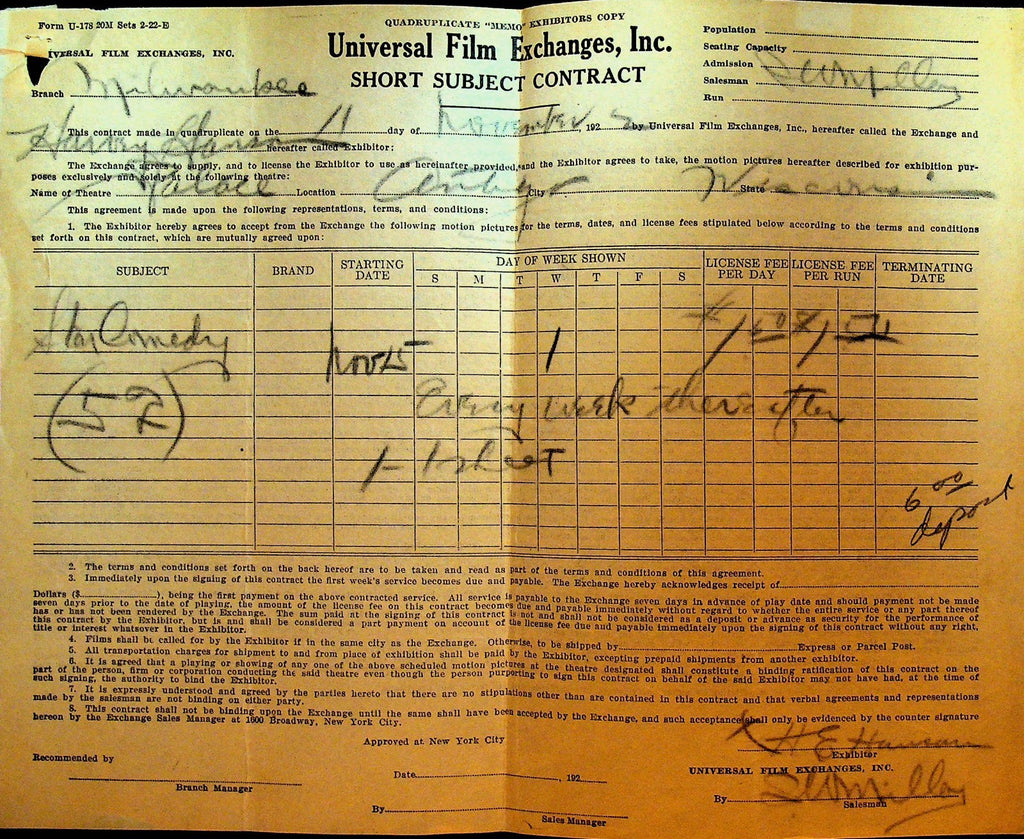 Form U-178 20M Sets 2-22-E
QUADRUPLICATE "MEMO" EXHIBITORS COPY
UNIVERSAL FILM EXCHANGES, INC.
Universal Film Exchanges, Inc.
SHORT SUBJECT CONTRACT
Branch Milwaukee
Population
Seating Capacity
Admission
Salesman
Run
This contract made in quadruplicate on the 11 day of November, 192 2 by Universal Film Exchanges, Inc., hereafter called the Exchange and
Harvey Hanson hereafter called Exhibitor:
The Exchange agrees to supply, and to license the Exhibitor to use as hereinafter provided, and the Exhibitor agrees to take, the motion pictures hereafter described for exhibition purposes
poses exclusively and solely at the following theatre:
Name of Theatre Palace Location City State Wisconsin
This agreement is made upon the following representations, terms, and conditions:
1. The Exhibitor hereby agrees to accept from the Exchange the following motion pictures for the terms, dates, and license fees stipulated below according to the terms and conditions
set forth on this contract, which are mutually agreed upon:
SUBJECT BRAND STARTING DATE DAY OF WEEK SHOWN LICENSE FEE PER DAY LICENSE FEE PER RUN TERMINATING DATE
S M T W T F S
Star Comedy Nov 15 1 $1.50 $1.50
(52) Every week thereafter
1 - 1 sheet
6.00 deposit
2. The terms and conditions set forth on the back hereof are to be taken and read as part of the terms and conditions of this agreement.
3. Immediately upon the signing of this contract the first week's service becomes due and payable. The Exchange hereby acknowledges receipt of
Dollars ($ ), being the first payment on the above contracted service. All service is payable to the Exchange seven days in advance of play date and should payment not be made
seven days prior to the date of playing, the amount of the license fee on this contract becomes due and payable immediately without regard to whether the entire service or any part thereof
has or has not been rendered by the Exchange. The sum paid at the signing of this contract is not and shall not be considered as a deposit or advance as security for the performance of
this contract by the Exhibitor, but is and shall be considered a part payment on account of the license fee due and payable immediately upon the signing of this contract without any right,
title or interest whatever in the Exhibitor.
4. Films shall be called for by the Exhibitor if in the same city as the Exchange. Otherwise, to be shipped by Express or Parcel Post.
5. All transportation charges for shipment to and from place of exhibition shall be paid by the Exhibitor, excepting prepaid shipments from another exhibitor.
6. It is agreed that a playing or showing of any one of the above scheduled motion pictures at the theatre designated shall constitute a binding ratification of this contract on the
part of the person, firm or corporation conducting the said theatre even though the person purporting to sign this contract on behalf of the said Exhibitor may not have had, at the time of
such signing, the authority to bind the Exhibitor.
7. It is expressly understood and agreed by the parties hereto that there are no stipulations other than are contained in this contract and that verbal agreements and representations
made by the salesman are not binding on either party.
8. This contract shall not be binding upon the Exchange until the same shall have been accepted by the Exchange, and such acceptance shall only be evidenced by the counter signature
hereon by the Exchange Sales Manager at 1600 Broadway, New York City.
Approved at New York City
X H E Hanson
Exhibitor
Recommended by
UNIVERSAL FILM EXCHANGES, INC.
Branch Manager
Date , 192
By
Salesman
By
Sales Manager